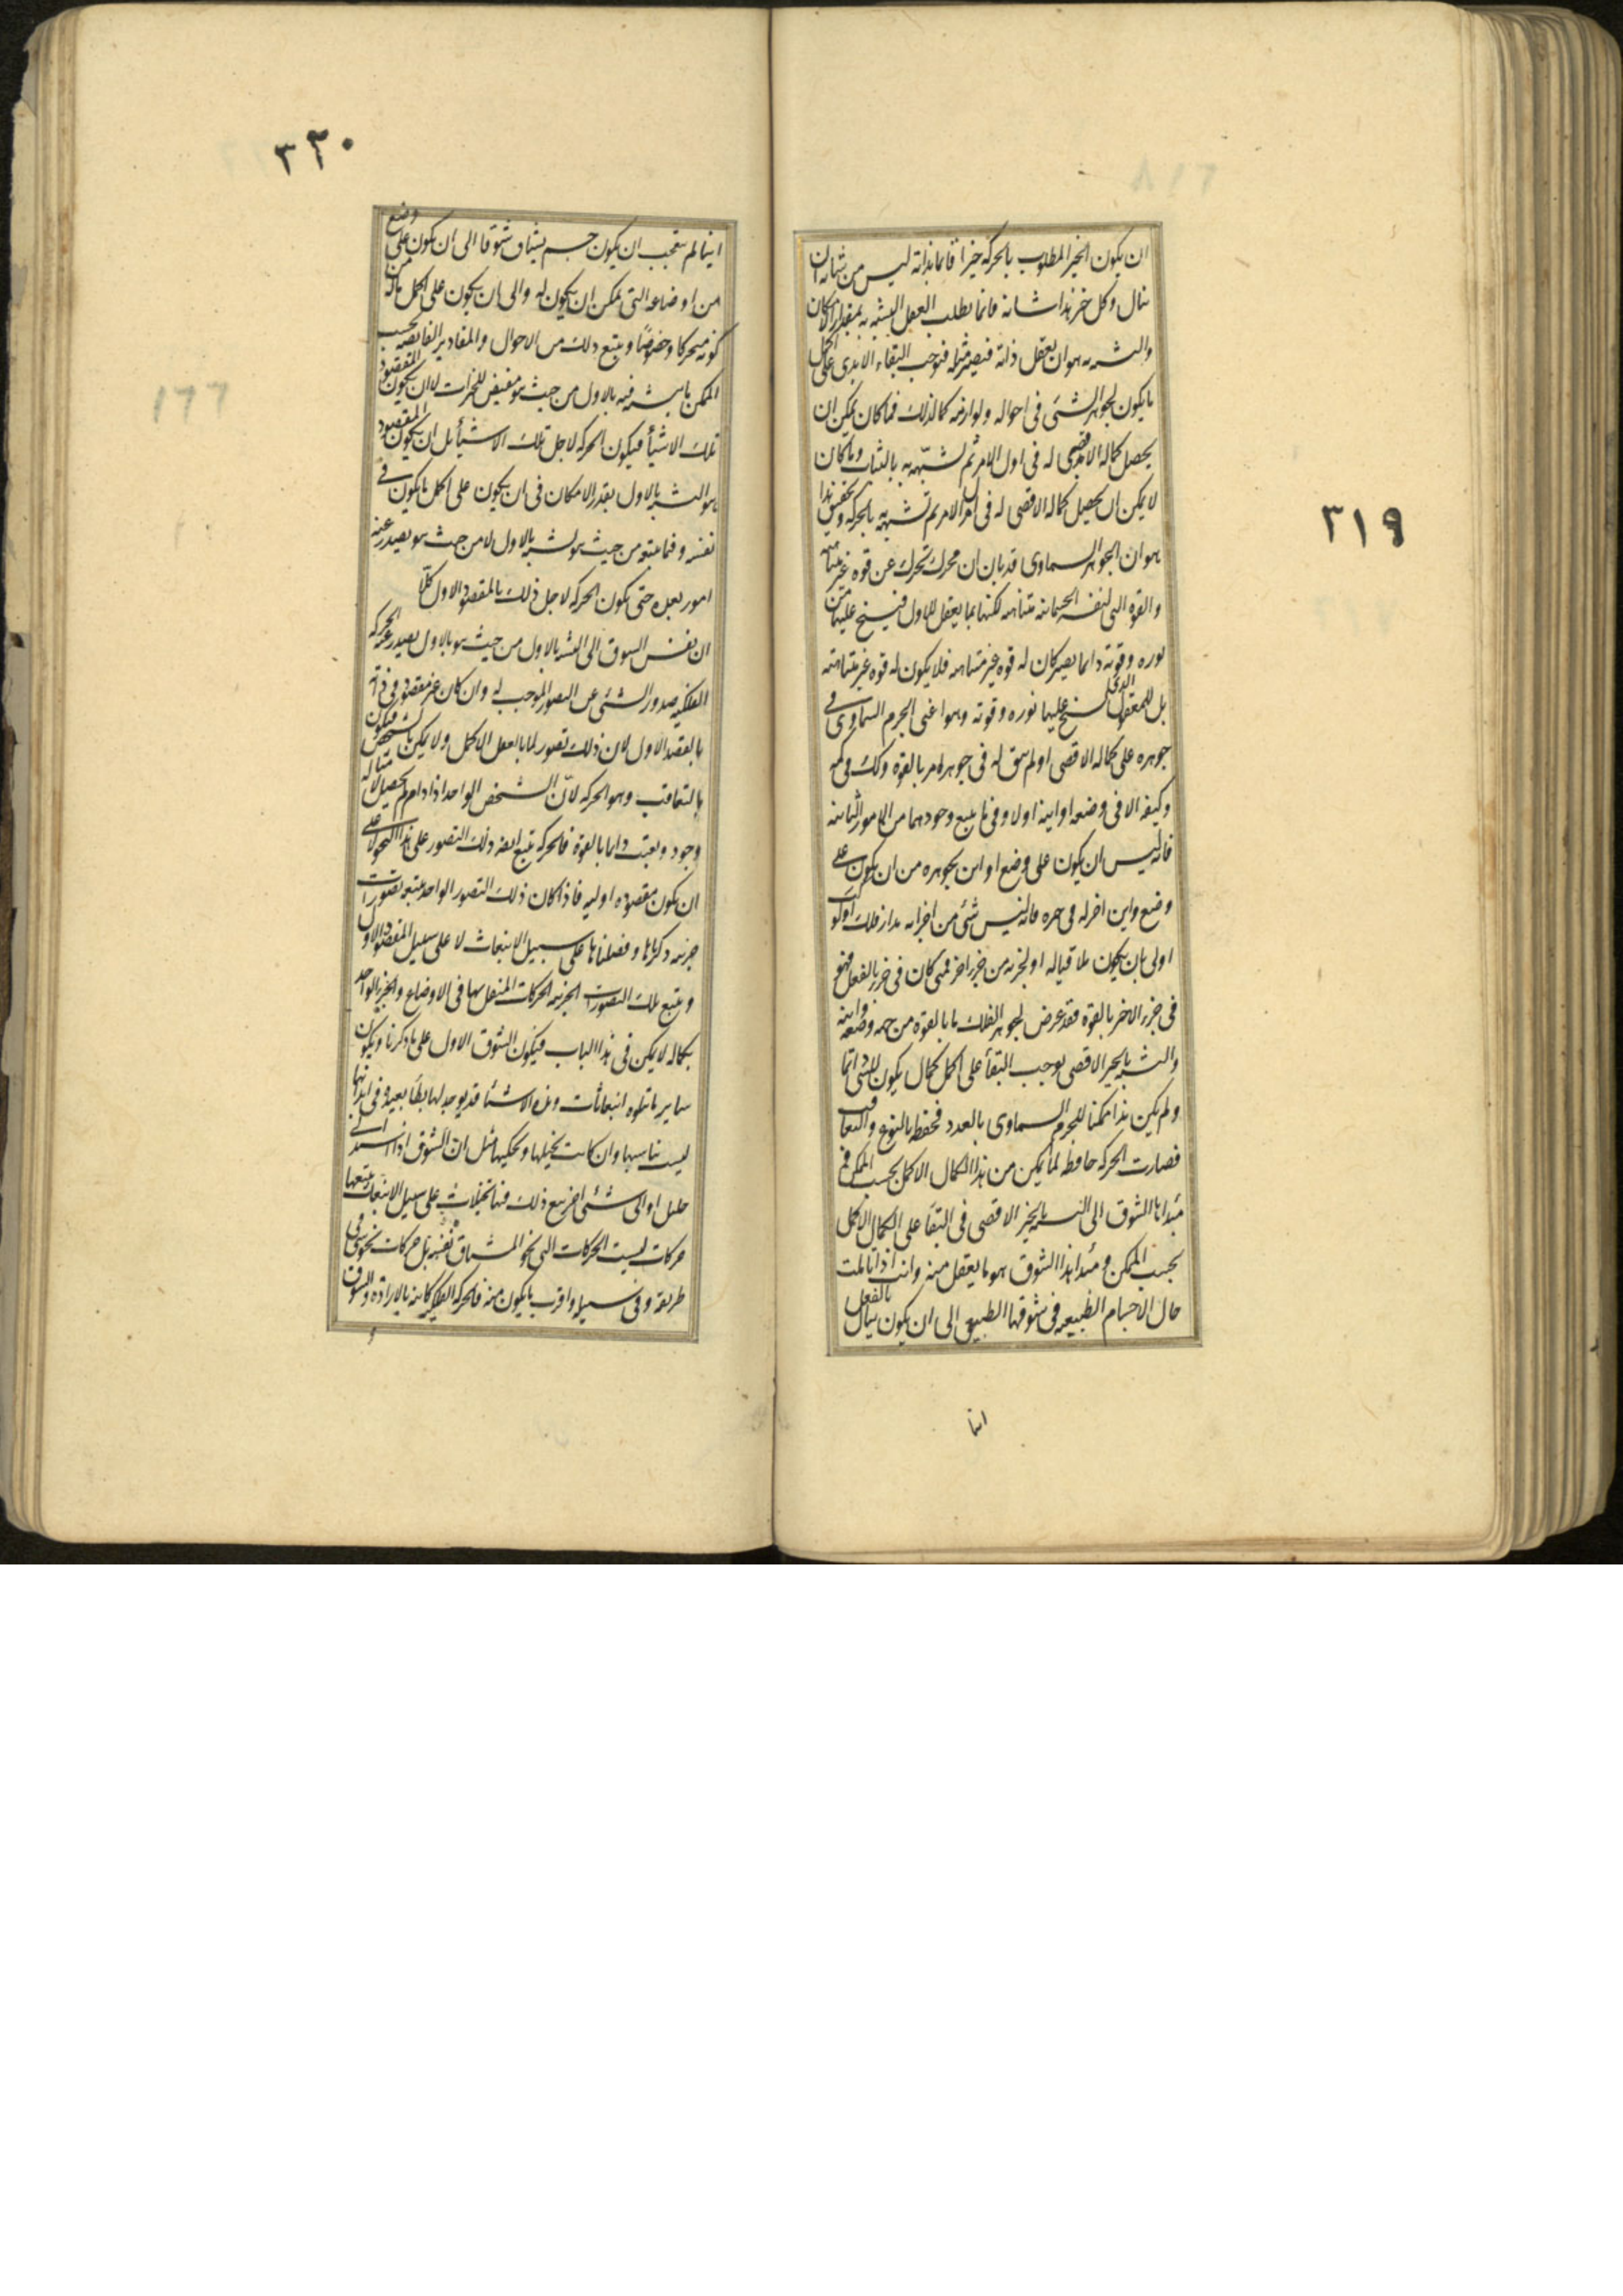 ٣١٩
ان يكون الخير المطلوب بالحركة خيرا قائما بذاته ليس من شانه ان
ينال وكل خير هذا شانه فانما يطلب العقل التشبه به بمقدار الامكان
والتشبه به هو ان يعقل ذاته فيصير مثله فيوجب البقاء الابدى على اكمل
ما يكون لجوهر الشئ فى احواله ولوازمه كما لذلك فما كان يمكن ان
يحصل كماله الاقصى له فى اول الامر تم تشبهه به بالثبات وما كان
لا يمكن ان يحصل كماله الاقصى له فى اول الامر تم تشبهه به بالحركة وتحقيق هذا
هو ان الجوهر السماوى قد بان ان محركه تحرك عن قوة غير متناهية
والقوة التى لنفسه الجسمانية متناهية لكنها بما يعقل الاول فيسيح عليها من
نوره وقوته دائما يصير كان له قوة غير متناهية فلا يكون له قوة غير متناهية
بل للمعقول الذى يسيح عليها نوره وقوته وهو اعنى الجرم السماوى فى
جوهره على كماله الاقصى اذ لم يبق له فى جوهره امر بالقوة وكذلك فى كمه
وكيفه الا فى وضعه او اينه اولا وفى ما يتبع وجودهما من الامور ثانيا فانه
فانه ليس ان يكون على وضع او اين بجوهره من ان يكون على
وضع واين اخر له فى حيزه فانه ليس شئ من اجزاء مدار فلك او كوكب
اولى بان يكون ملاقيا له او لجزئه من جزء اخر فمتى كان فى جزء بالفعل فهو
فى جزء الاخر بالقوة فقد عرض لجوهر الفلك ما بالقوة من جهة وضعه واينه
والتشبه بالخير الاقصى يوجب البقاء على اكمل كمال يكون للشئ دائما
ولم يكن هذا ممكنا للجرم السماوى بالعدد فحفظ بالنوع والتعاقب
فصارت الحركة حافظة لما يمكن من هذا الكمال الاكمل بحسب الممكن فى
مبدأها الشوق الى التشبه بالخير الاقصى فى البقاء على الكمال الاكمل
بحسب الممكن ومبدأ هذا الشوق هو ما يعقل منه وانت اذا تاملت
حال الاجسام الطبيعية فى شوقها الطبيعى الى ان يكون بالفعل ينال
اينا
٣٢٠
اينا لم تعجب ان يكون جسم يشتاق شوقا الى ان يكون على وضع
من اوضاعه التى يمكن ان يكون له والى ان يكون على اكمل ماله من
كونه متحركا وخصوصا ويتبع ذلك من الاحوال والمقادير الفايضة بحسب
الممكن ما يتشبه فيه بالاول من حيث هو مفيض للخيرات لا ان يكون المقصود
تلك الاشياء فيكون الحركة لاجل تلك الاشياء بل ان يكون المقصود
هو التشبه بالاول بقدر الامكان فى ان يكون على اكمل ما يكون فى
نفسه وفيما يتبعه من حيث هو تشبه بالاول لا من حيث هو يصدر عنه
امور بعده حتى يكون الحركة لاجل ذلك بالمقصود الاول كلا
ان نفس الشوق الى التشبه بالاول من حيث هو بالاول يصدر عنه الحركة
الفلكية صدور الشئ عن التصور الموجب له وان كان غير مقصود فى ذاته
بالقصد الاول لان ذلك تصور لما بالفعل الاكمل ولا يمكن بالشخص فيكون
بالتعاقب وهو الحركة لان الشخص الواحد اذا دام لم يحصل لامثاله
وجود وبقيت دائما بالقوة فالحركة تتبع ايضا ذلك التصور على هذا النحو لا على
ان يكون مقصودة اولية فاذا كان ذلك التصور الواحد يتبعه تصورات
جزئية ذكرناها وفصلناها على سبيل الانبعاث لا على سبيل المقصود الاول
ويتبع تلك التصورات الجزئية الحركات المنتقل بها فى الاوضاع والجزء الواحد
بكماله لا يمكن فى هذا الباب فيكون الشوق الاول على ما ذكرنا ويكون
ساير ما تتلوه انبعاثات وهذه الاشياء قد يوجد لها نظاير بعيدة فى ابداننا
ليست تناسبها وان كانت تخيلها وتحكيها مثل ان الشوق اذا اشتد الى
خليل او الى شئ اخر يتبع ذلك فينا تخيلات على سبيل الانبعاث يتبعها
حركات ليست الحركات التى نحو المشتاق نفسه بل حركات نحو شئ فى
طريقه وفى سبيله واقرب ما يكون منه فالحركة الفلكية كائنة بالارادة والشوق
١٦٦